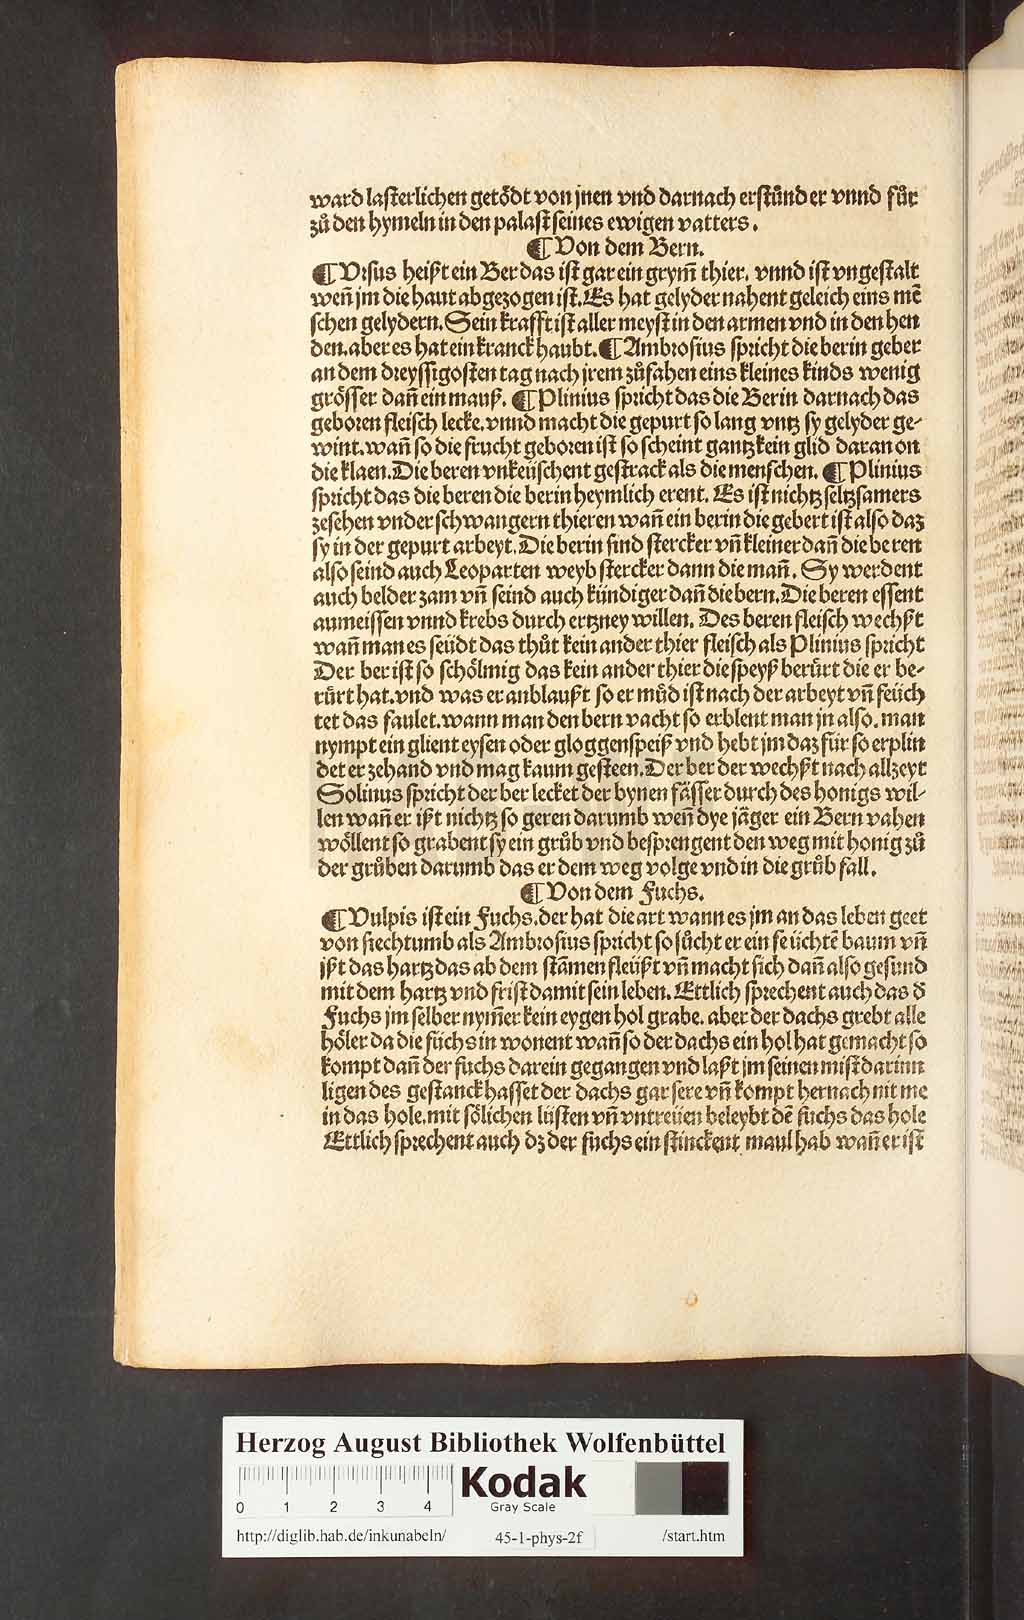 ward lasterlichen getödt von jnen vnd darnach erstůnd er vnnd fůr
zů den hymeln in den palast seines ewigen vatters.
¶ Von dem Bern.
¶ Vrsus heißt ein Ber das ist gar ein grym̄ thier. vnnd ist vngestalt
weñ jm die haut abgezogen ist. Es hat gelyder nahent geleich eins mē
schen gelydern. Sein krafft ist aller meyst in den armen vnd in den hen
den. aber es hat ein kranck haubt. ¶ Ambrosius spricht die berin geber
an dem dreyssigosten tag nach jrem zůsahen eins kleines kinds wenig
grösser dañ ein mauß. ¶ Plinius spricht das die Berin darnach das
geboren fleisch lecke. vnnd macht die gepurt so lang vntz sy gelyder ge-
wint. wañ so die frucht geboren ist so scheint gantz kein glid daran on
die klaen. Die beren vnkeüschent gestrack als die menschen. ¶ Plinius
spricht das die beren die berin heymlich erent. Es ist nichtz seltzsamers
zesehen vnder schwangern thieren wañ ein berin die gebert ist also daz
sy in der gepurt arbeyt. Die berin sind stercker vñ kleiner dañ die beren
also seind auch Leoparten weyb stercker dann die mañ. Sy werdent
auch belder zam vñ seind auch kündiger dañ die bern. Die beren essent
aumeissen vnnd krebs durch ertzney willen. Des beren fleisch wechßt
wañ man es seüdt das thůt kein ander thier fleisch als Plinius spricht
Der ber ist so schölmig das kein ander thier die speyß berürt die er be-
rürt hat. vnd was er anblaußt so er můd ist nach der arbeyt vñ feüch
tet das faulet. wann man den bern vacht so erblent man jn also. man
nympt ein glient eysen oder gloggenspeiß vnd hebt jm daz für so erplin
det er zehand vnd mag kaum gesteen. Der ber der wechßt nach allzeyt
Solinus spricht der ber lecket der bynen fässer durch des honigs wil-
len wañ er ißt nichtz so geren darumb weñ dye jäger ein Bern vahen
wöllent so grabent sy ein grůb vnd besprengent den weg mit honig zů
der grůben darumb das er dem weg volge vnd in die grůb fall.
¶ Von dem Fuchs.
¶ Vulpis ist ein Fuchs. der hat die art wann es jm an das leben geet
von siechtumb als Ambrosius spricht so sůcht er ein feüchtē baum vñ
ißt das hartz das ab dem stāmen fleüßt vñ macht sich dañ also gesund
mit dem hartz vnd frist damit sein leben. Ettlich sprechent auch das d̕
Fuchs jm selber nym̄er kein eygen hol grabe. aber der dachs grebt alle
höler da die füchs in wonent wañ so der dachs ein hol hat gemacht so
kompt dañ der fuchs darein gegangen vnd laßt jm seinen mist darinn
ligen des gestanck hasset der dachs gar sere vñ kompt hernach nit me
in das hole. mit sölichen lüsten vñ vntreüen beleybt dē fuchs das hole
Ettlich sprechent auch dz der fuchs ein stinckent maul hab wañ er ist
Herzog August Bibliothek Wolfenbüttel
0 1 2 3 4
Kodak
Gray Scale
http://diglib.hab.de/inkunabeln/ 45-1-phys-2f /start.htm